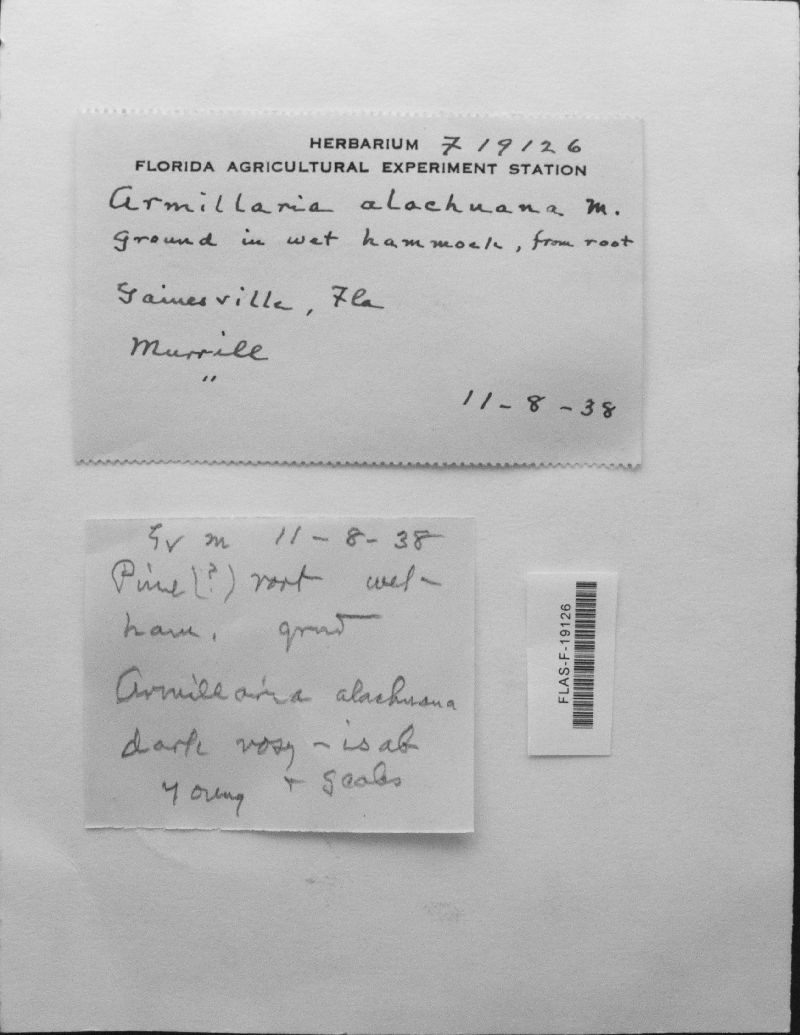 HERBARIUM F 19126
FLORIDA AGRICULTURAL EXPERIMENT STATION
Armillaria alachuana M.
Ground in wet hammock, from root
Gainesville, Fla
Murrill
"
11-8-38
Gv M 11-8-38
Pine (?) root wet
ham. grnd
Armillaria alachuana
dark rosy - isab
young + scales
FLAS-F-19126